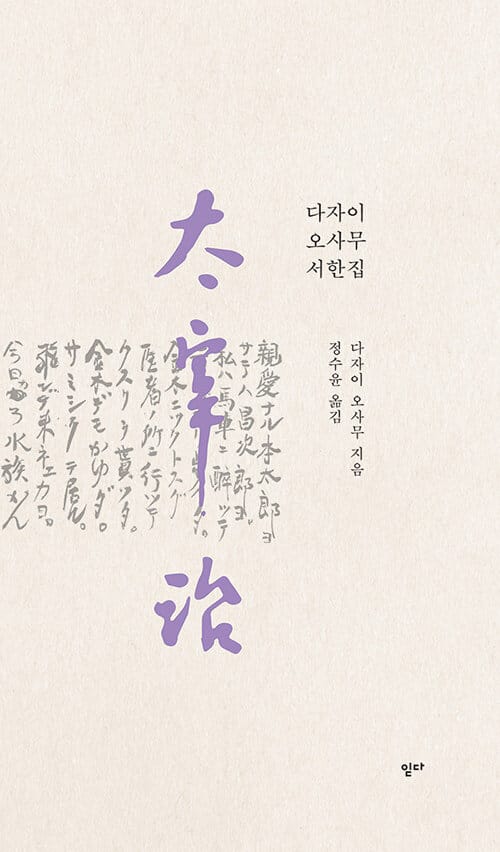 다자이
오사무
서한집
다자이 오사무 지음
정수윤 옮김
太宰治
親愛ナル本太郎ヨ
サラバ昌次郎ヨ
私ハ馬車ニ酔ッテ
金木ニツクトスグ
医者ノ所ニ行ッテ
クスリヲ貰ッタ。
金木デモかゆダ。
サミシクテ居ル。
今日カラ水族かん
읻다